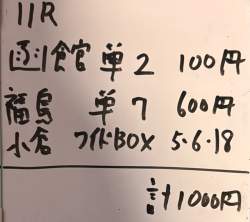 11R
函館 単2 100円
福島 単7 600円
小倉 ワイドBOX 5・6・18
計1000円